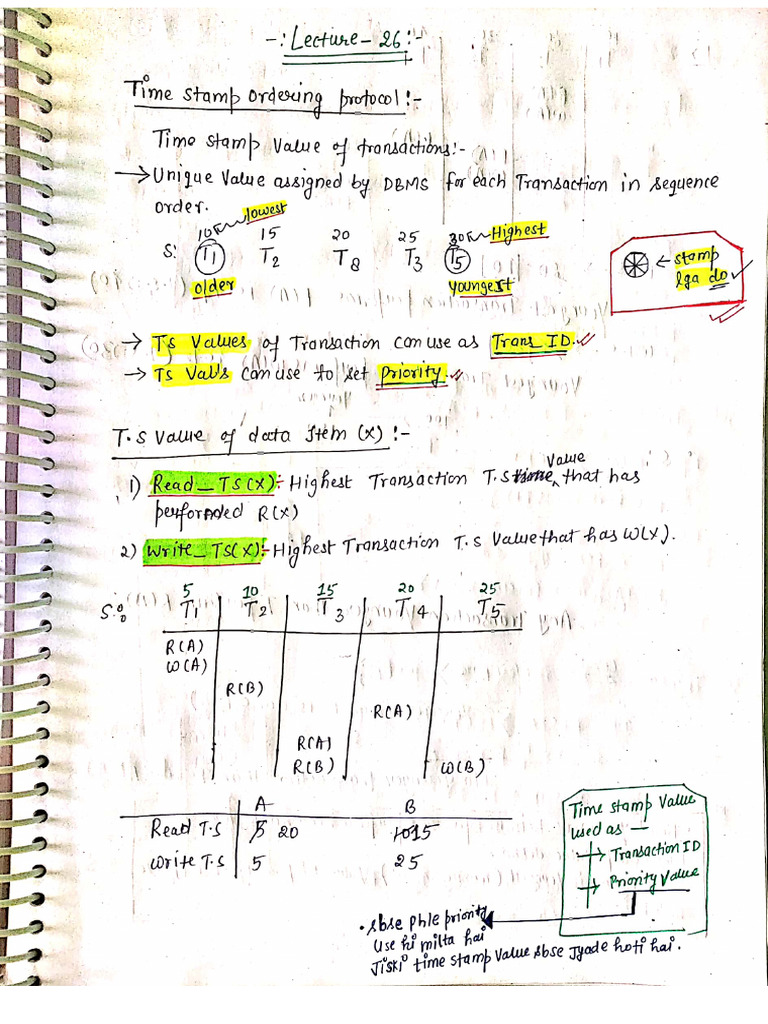 -: Lecture - 26 :-
Time stamp ordering protocol :-
Time stamp value of transactions :-
→ Unique value assigned by DBMS for each Transaction in sequence
order.
10 lowest 15 20 25 30 Highest
S: T1 T2 T8 T3 T5
older youngest
← stamp
lga do
→ Ts values of Transaction can use as Trans_ID.
→ Ts val's can use to set priority.
T.S value of data Item (x) :-
1) Read_TS(X) :- Highest Transaction T.S time value that has
performed R(X)
2) Write_TS(X) :- Highest Transaction T.S value that has W(X).
5 10 15 20 25
S: T1 T2 T3 T4 T5
R(A)
W(A)
R(B)
R(A)
R(A)
R(B) W(B)
A B
Read T.S 5 20 10 15
Write T.S 5 25
Time stamp value
used as —
→ Transaction ID
→ Priority value
• sbse phle priority
use hi milta hai
Jiski time stamp value sbse Jyade hoti hai.